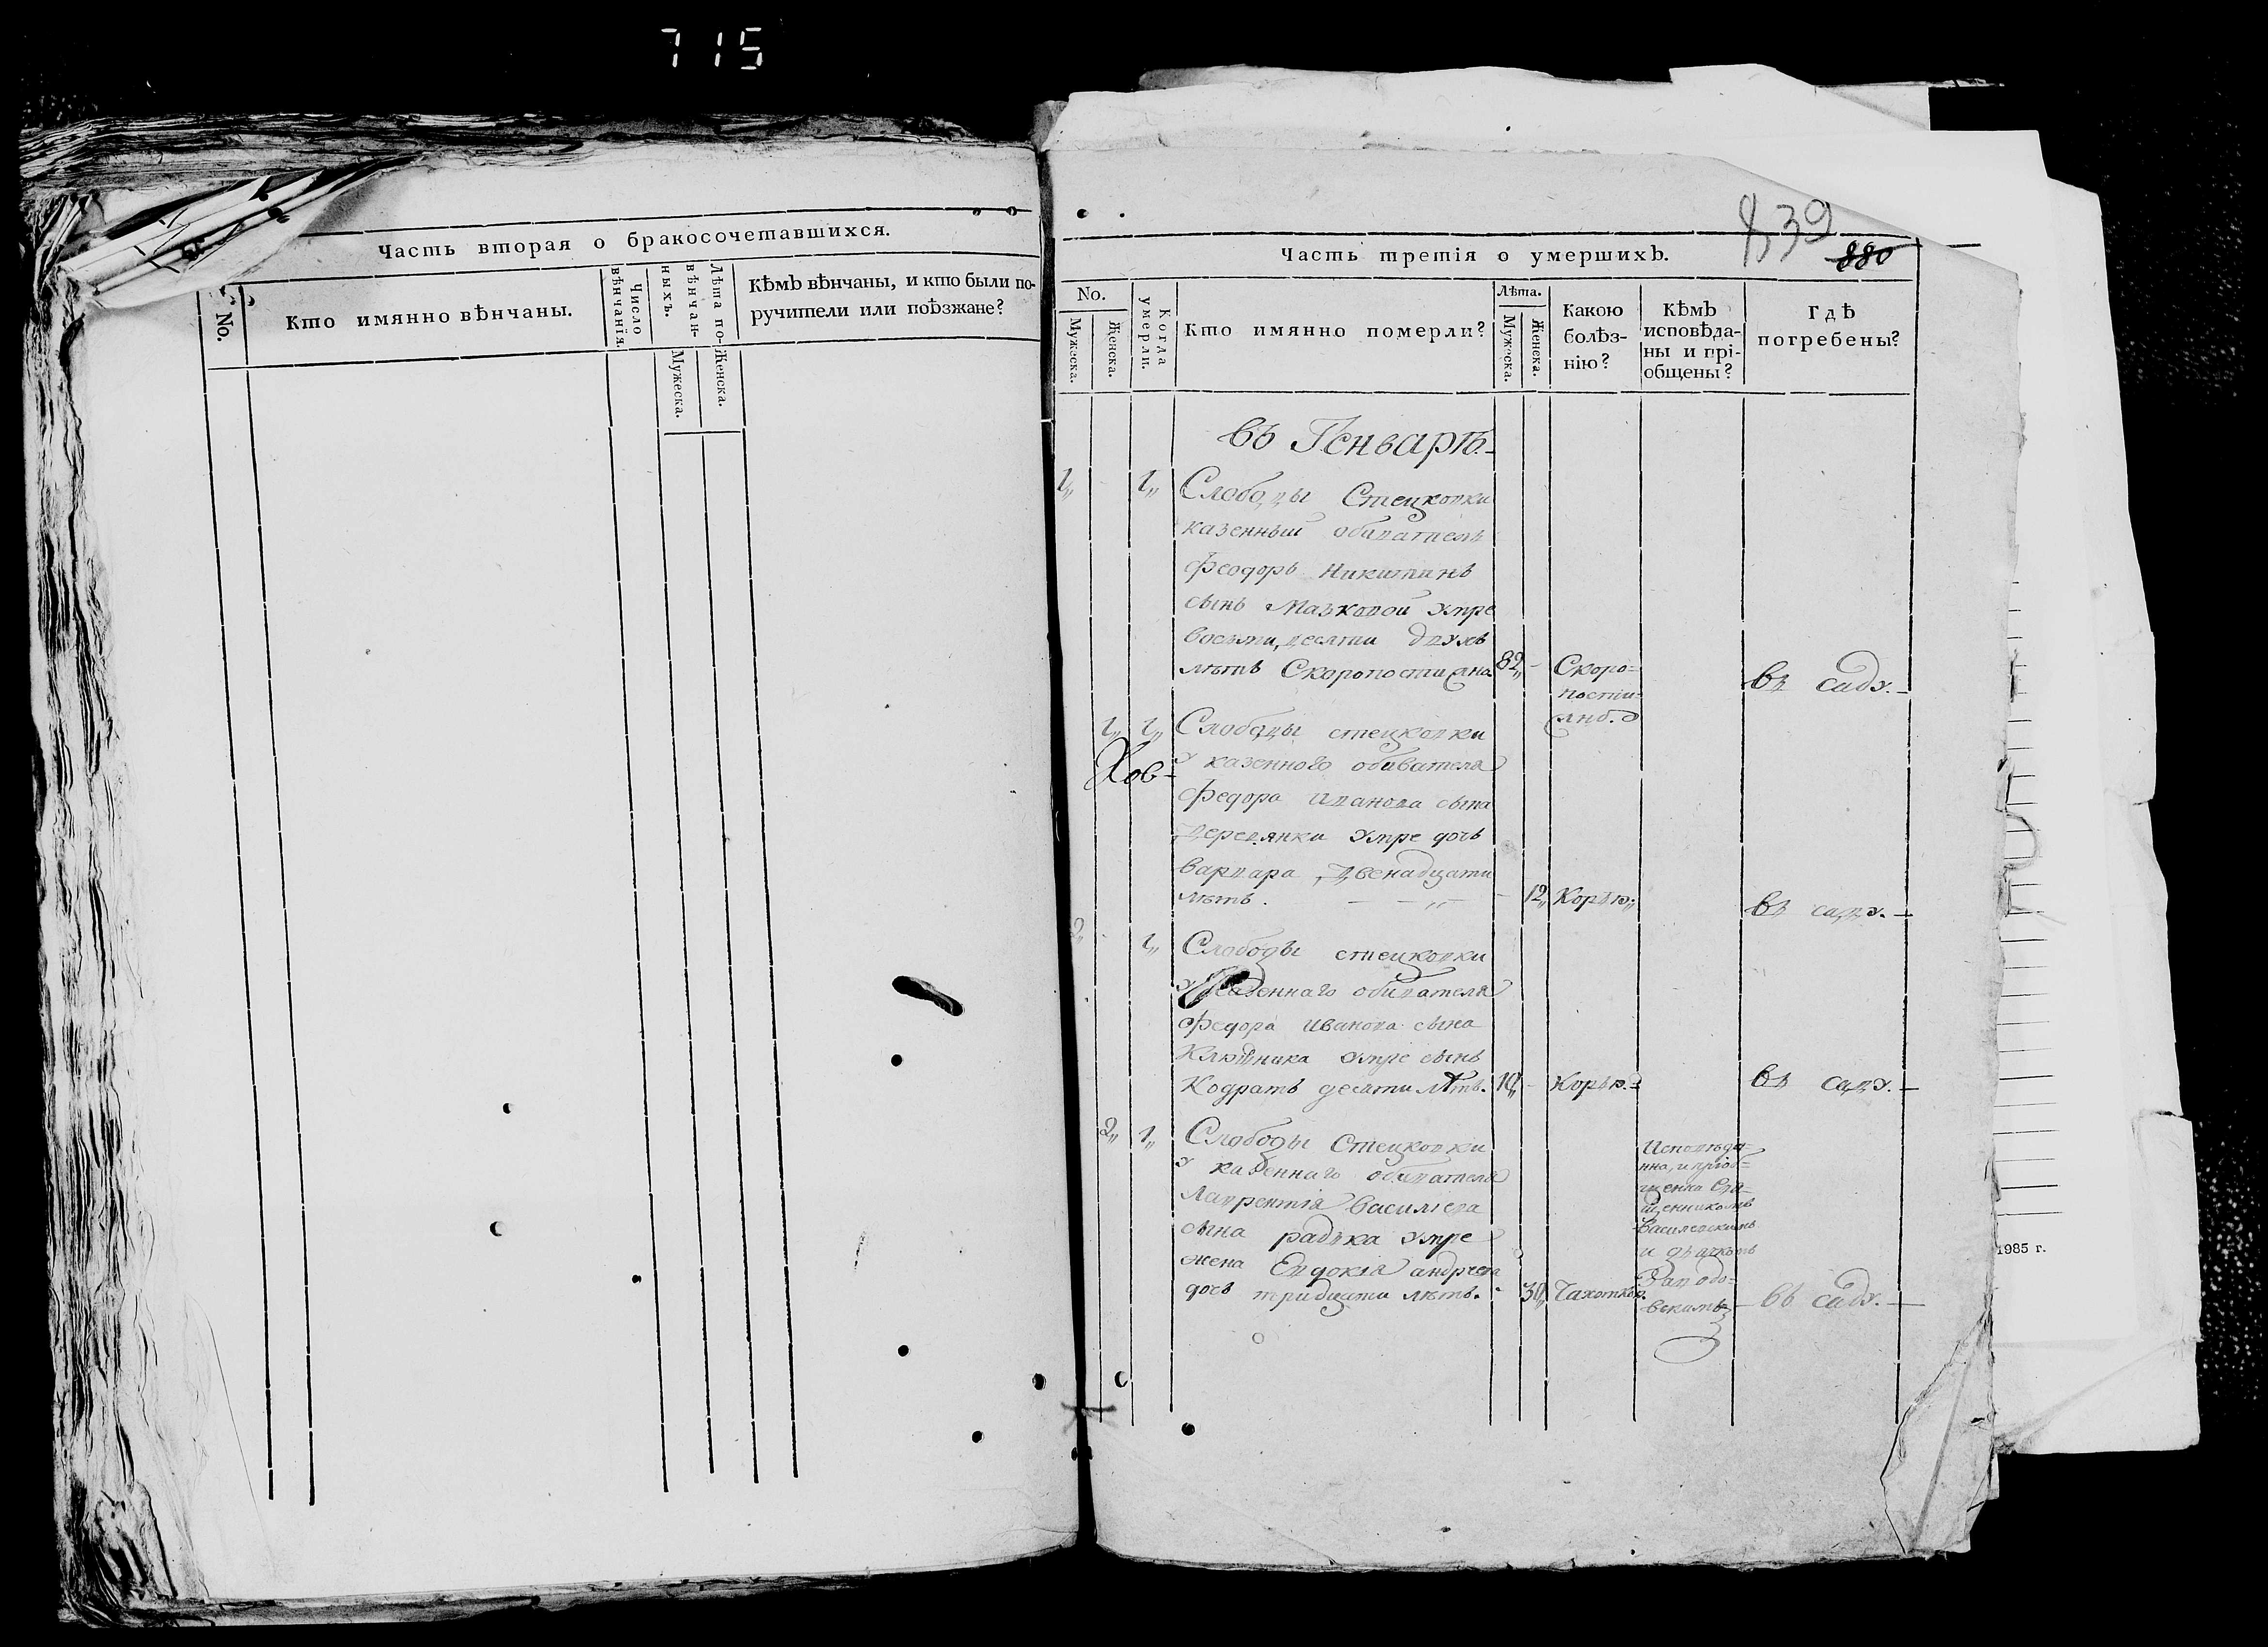 715
Часть вторая о бракосочетавшихся.
No.
Кто имянно вѣнчаны.
Число вѣнчанія.
Лѣта по-
вѣнчан-
ныхъ.
Мужеска.
Женска.
Кѣмъ вѣнчаны, и кто были по-
ручители или поѣзжане?
839
880
Часть третія о умершихъ.
No.
Мужеска.
Женска.
Когда умерли.
Кто имянно померли?
Лѣта.
Мужеска.
Женска.
Какою
болѣз-
нію?
Кѣмъ
исповѣда-
ны и прі-
общены?
Гдѣ
погребены?
въ Генварѣ.
1„ 1„ Слободы Стецковки
казенный обиватель
Феодоръ Никитинъ
сынъ Мазковой умре
восьми десяти двухъ
лѣтъ Скоропостижно 82„ - Скоро-
пости-
въ саду.
1„ 1„ Слободы стецковки
Хов-
у казенного обивателя
Федора иванова сына
деревянки умре дочь
варвара двенадцати
лѣтъ. - 12„ Корью„ въ саду.
2„ 1„ Слободы стецковки
у казеннаго обивателя
Федора иванова сына
Ключника умре сынъ
Кодратъ десяти лѣтъ. 10„ - Корью. въ саду.
2„ 1„ Слободы Стецковки
у казеннаго обивателя
Лаврентія василіева
сына радька умре
жена Евдокія андреева
дочь тридцати лѣтъ. 30„ Чахоткою.
Исповѣда-
нна, и пріоб-
щенна Свя-
щенникомъ
Василевскимъ
и дьякомъ
въ саду.
1985 г.